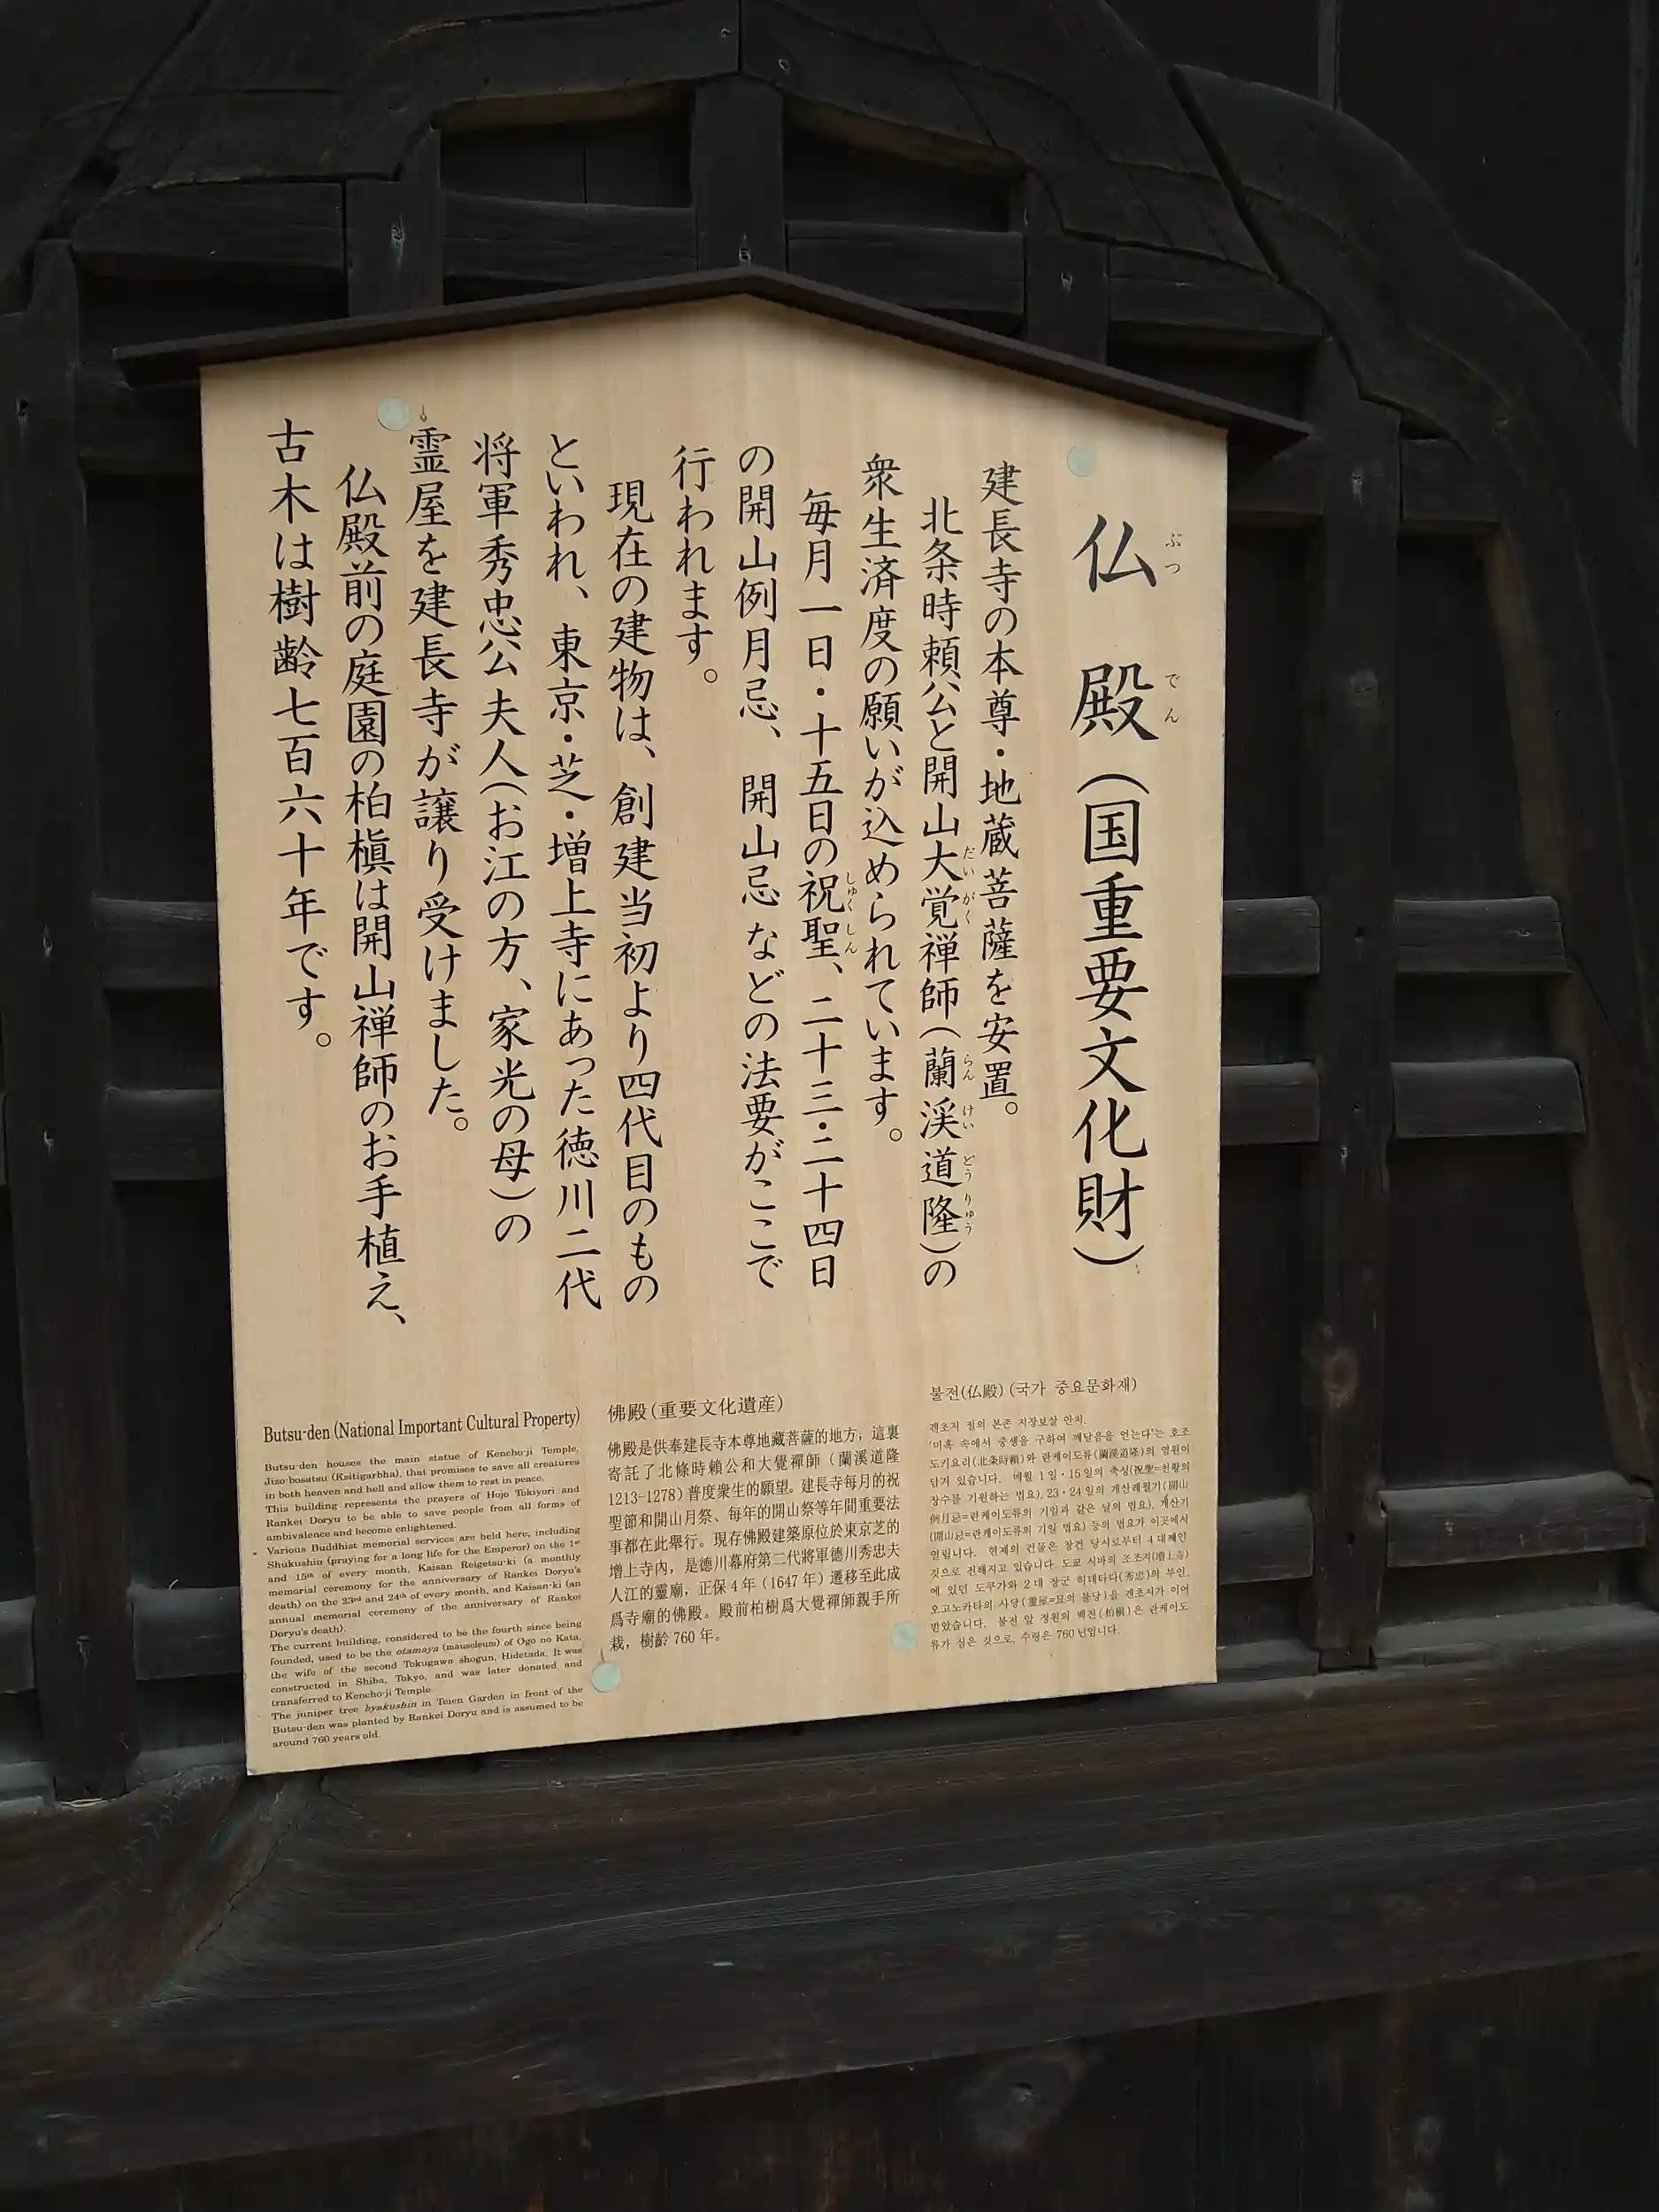 仏殿(国重要文化財)
ぶつ でん
建長寺の本尊・地蔵菩薩を安置。
北条時頼公と開山大覚禅師(蘭渓道隆)の
だいがく らんけいどうりゅう
衆生済度の願いが込められています。
毎月一日・十五日の祝聖、二十三・二十四日
しゅくしん
の開山例月忌、開山忌などの法要がここで
行われます。
現在の建物は、創建当初より四代目のもの
といわれ、東京・芝・増上寺にあった徳川二代
将軍秀忠公夫人(お江の方、家光の母)の
霊屋を建長寺が譲り受けました。
仏殿前の庭園の柏槇は開山禅師のお手植え、
古木は樹齢七百六十年です。
Butsu-den (National Important Cultural Property)
Butsu-den houses the main statue of Kencho-ji Temple,
Jizo-bosatsu (Ksitigarbha), that promises to save all creatures
in both heaven and hell and allow them to rest in peace.
This building represents the prayers of Hojo Tokiyori and
Rankei Doryu to be able to save people from all forms of
ambivalence and become enlightened.
Various Buddhist memorial services are held here, including
Shukushin (praying for a long life for the Emperor) on the 1st
and 15th of every month, Kaisan Reigetsu-ki (a monthly
memorial ceremony for the anniversary of Rankei Doryu's
death) on the 23rd and 24th of every month, and Kaisan-ki (an
annual memorial ceremony of the anniversary of Rankei
Doryu's death).
The current building, considered to be the fourth since being
founded, used to be the otamaya (mausoleum) of Ogo no Kata,
the wife of the second Tokugawa shogun, Hidetada. It was
constructed in Shiba, Tokyo, and was later donated and
transferred to Kencho-ji Temple.
The juniper tree byakushin in Teien Garden in front of the
Butsu-den was planted by Rankei Doryu and is assumed to be
around 760 years old.
佛殿(重要文化遺産)
佛殿是供奉建長寺本尊地藏菩薩的地方，這裏
寄託了北條時賴公和大覺禪師（蘭溪道隆
1213-1278）普度衆生的願望。建長寺每月的祝
聖節和開山月祭、每年的開山祭等年間重要法
事都在此舉行。現存佛殿建築原位於東京芝的
增上寺內，是德川幕府第二代將軍德川秀忠夫
人江的靈廟，正保4年（1647年）遷移至此成
爲寺廟的佛殿。殿前柏樹爲大覺禪師親手所
栽，樹齡760年。
불전(仏殿) (국가 중요문화재)
겐초지 절의 본존 지장보살 안치.
'미혹 속에서 중생을 구하여 깨달음을 얻는다'는 호조
도키요리(北条時頼)와 란케이도류(蘭渓道隆)의 염원이
담겨 있습니다. 매월 1일·15일의 축성(祝聖=천황의
장수를 기원하는 법요), 23·24일의 개산례월기(開山
例月忌=란케이도류의 기일과 같은 날의 법요), 개산기
(開山忌=란케이도류의 기일 법요) 등의 법요가 이곳에서
열립니다. 현재의 건물은 창건 당시로부터 4대째인
것으로 전해지고 있습니다. 도쿄 시바의 조조지(増上寺)
에 있던 도쿠가와 2대 장군 히데타다(秀忠)의 부인,
오고노카타의 사당(霊屋=묘의 불당)을 겐초지가 이어
받았습니다. 불전 앞 정원의 백진(柏槇)은 란케이도
류가 심은 것으로, 수령은 760년입니다.